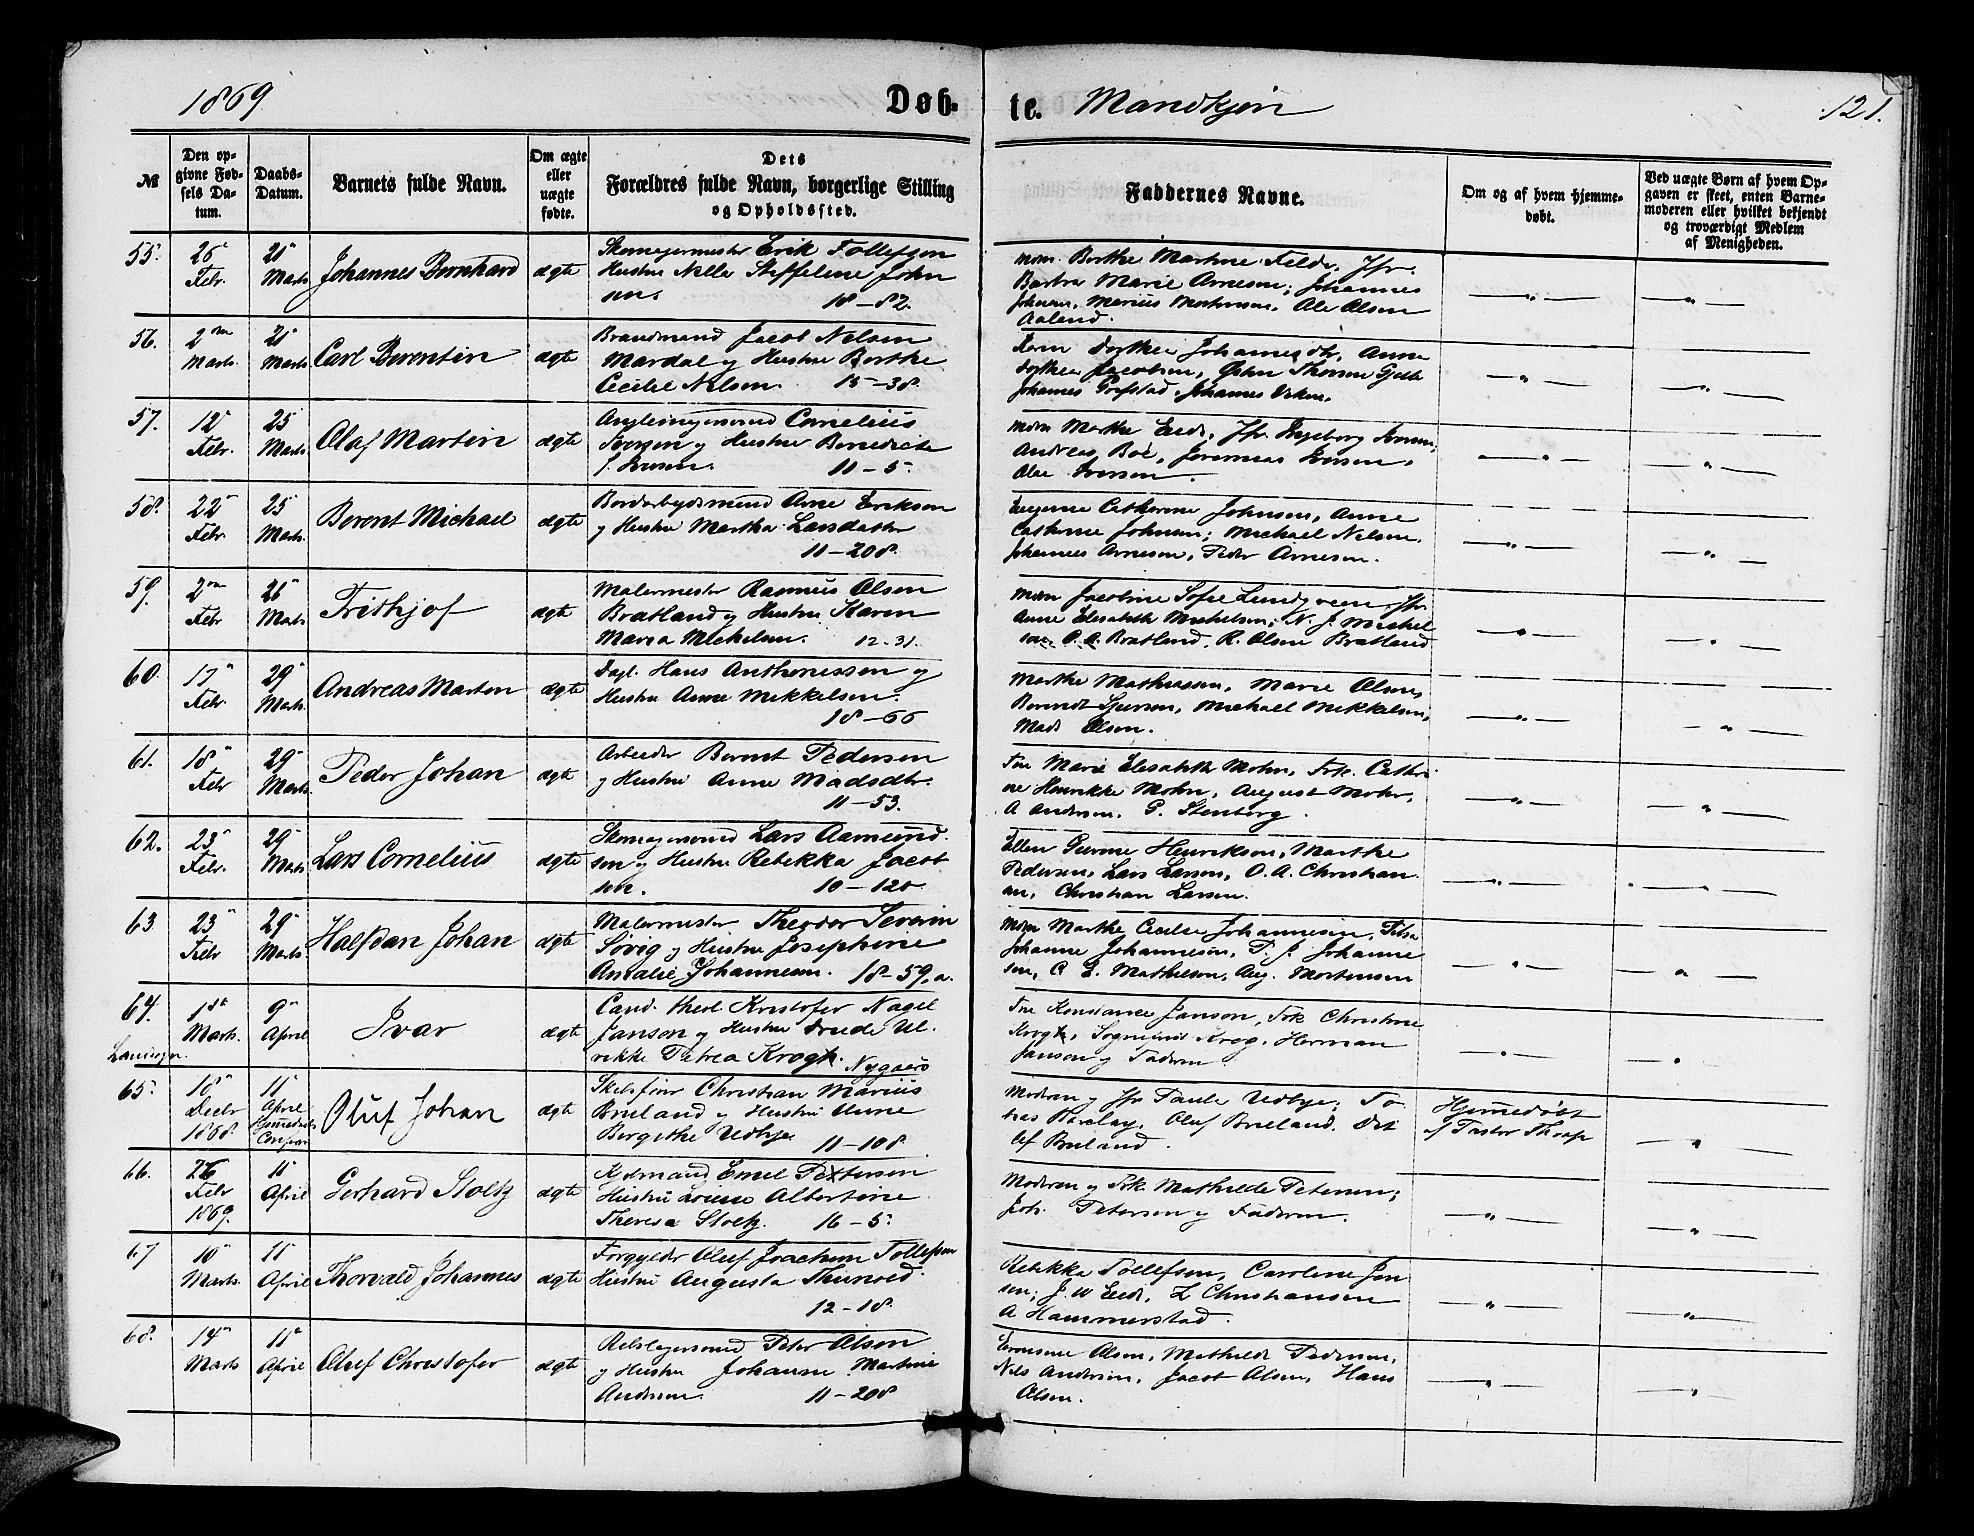 1869
Døb-
te.
Mandkjøn
121.
№
Den op-
givne Fød-
sels Da-
tum.
Daabs-
Datum.
Barnets fulde Navn.
Om ægte
eller
uægte
fødte.
Dets
Forældres fulde Navn, borgerlige Stilling
og Opholdssted.
Faddernes Navne.
Om og af hvem hjemme-
døbt.
Ved uægte Børn af hvem Op-
gaven er skeet, enten Barne-
moderen eller hvilket bekjendt
og troværdigt Medlem
af Menigheden.
55.
Febr.
Marts
Johannes Bernhard
ægte
Skomagermester Erik Tollefson
Hustru Nille Steffeline John
sen.
18-82.
Mdm. Berthe Martine Felde, Jfr.
Barbra Marie Arnesen; Johannes
Johnsen, Marius Mortensen, Ole Olsen
Aaland.
56.
2den
Marts
Marts
Carl Berentin
ægte
Brandmand Jacob Nilsen
Mardal og Hustru Berthe
Cecilie Nilsen.
15-38.
Dorthea Johannesdtr, Anne
Dorthea Jacobsen,
Johannes
57.
12
Febr.
25
Marts
Olaf Martin
ægte
Cornelius
Iversen og Hustru Benedicte
J. Iversen.
11-5.
Mdm Marthe
Jfr. Ingeborg Iversen,
Andreas Boe,
Iversen,
Ole Iversen.
58.
22
Febr.
25
Marts
Berent Michael
ægte
Bordarbeidsmand Arne Erikson
og Hustru Martha Larsdatter
11-208.
Cathrine Johnsen, Anne
Cathrine Johnsen; Michael Nilsen,
Johannes Arnesen, Peder Arnesen.
59.
2den
Febr
26
Marts
Frithjof
ægte
Malermester Rasmus Olsen
Bratland og Hustru Karen
Maria Mickelsen.
12-31.
Mdm Jacobine Sofie
Jfr.
Anne Elisabeth Mickelsen; N. J. Mickel
sen, O. A. Bratland, R. Olsen Bratland
60.
17
Febr.
29
Marts
Andreas Marten
ægte
Dagl. Hans Anthonissen og
Hustru Anne Mikkelsen.
18-66
Marthe Mathiasen, Marie Olsen,
Berendt Sjursen, Michael Mikkelsen,
Mads Olsen.
61.
18
Febr
29
Marts.
Peder Johan
ægte
Arbeider Berent Pedersen
og Hustru Anne Madsdtr.
11-53.
Fru Marie Elisabeth Mohr, Frk. Cathri
ne Henrikke Mohr, August Mohr,
A Andersen, P. Stenberg.
62.
23
Febr.
29
Marts
Lars Cornelius
ægte
Lars Aamund
sen og Hustru Rebekka Jacob
sen.
10-120
Ellen Gurine Henriksen, Marthe
Pedersen, Lars Larsen, O. A. Christian
sen, Christian Larsen.
63
23
Febr
29
Marts.
Halfdan Johan
ægte
Malermester Theodor Severin
Lovig og Hustru Josephine
Amalie Johannesen.
18-59,a.
Mdm Marthe Cecilie Johannesen,
Johanne Johannesen, P. J. Johanne
sen, C. E. Mathiesen, Aug. Mortensen
64.
Landsogn.
1ste
Marts.
9
April
Ivar
ægte
Cand. theol Kristofer Nagel
Janson og Hustru Drude Ul.
rikke Petrea Krogh.
Nygaard
Fru Konstance Janson, Frk Christine
Krogh, Sogneprest Krog, Herman
Janson og Faderen.
65.
18
Decbr
1868.
11
April
Hjemmedaab
Oluf Johan
ægte
Christian Marius
Brieland og Hustru Anne
Bergithe Udbye
11-108.
Moderen og Jfr Paule Udbye; To
bias Barclay, Oluf Brieland, Det
lef Brieland.
Hjemmedøbt
af Pastor Thrap
66.
26
Febr
1869.
11
April
Gerhard Stoltz
ægte
Kjbmand Emil Petersen
Hustru Louise Albertine
Theresa Stoltz.
16-5.
Moderen og Frk. Mathilde Petersen;
Joh. Petersen og Faderen.
67
10
Marts.
11
April
Thorvald Johannes
ægte
Forgylder Oluf Joachim Tollefsen
Hustru Augusta Thurvold.
12-18.
Rebekka Tollefsen, Caroline Jen
sen; J. W Eide, L Christiansen
A Hammerstad.
68.
14
Marts
11
April
Oluf Christofer
ægte
Rebslagersvend Peter Olsen
og Hustru Johanne Martine
Andersen.
11-208
Olsen, Mathilde Pedersen,
Nils Andersen, Jacob Olsen, Hans
Olsen.